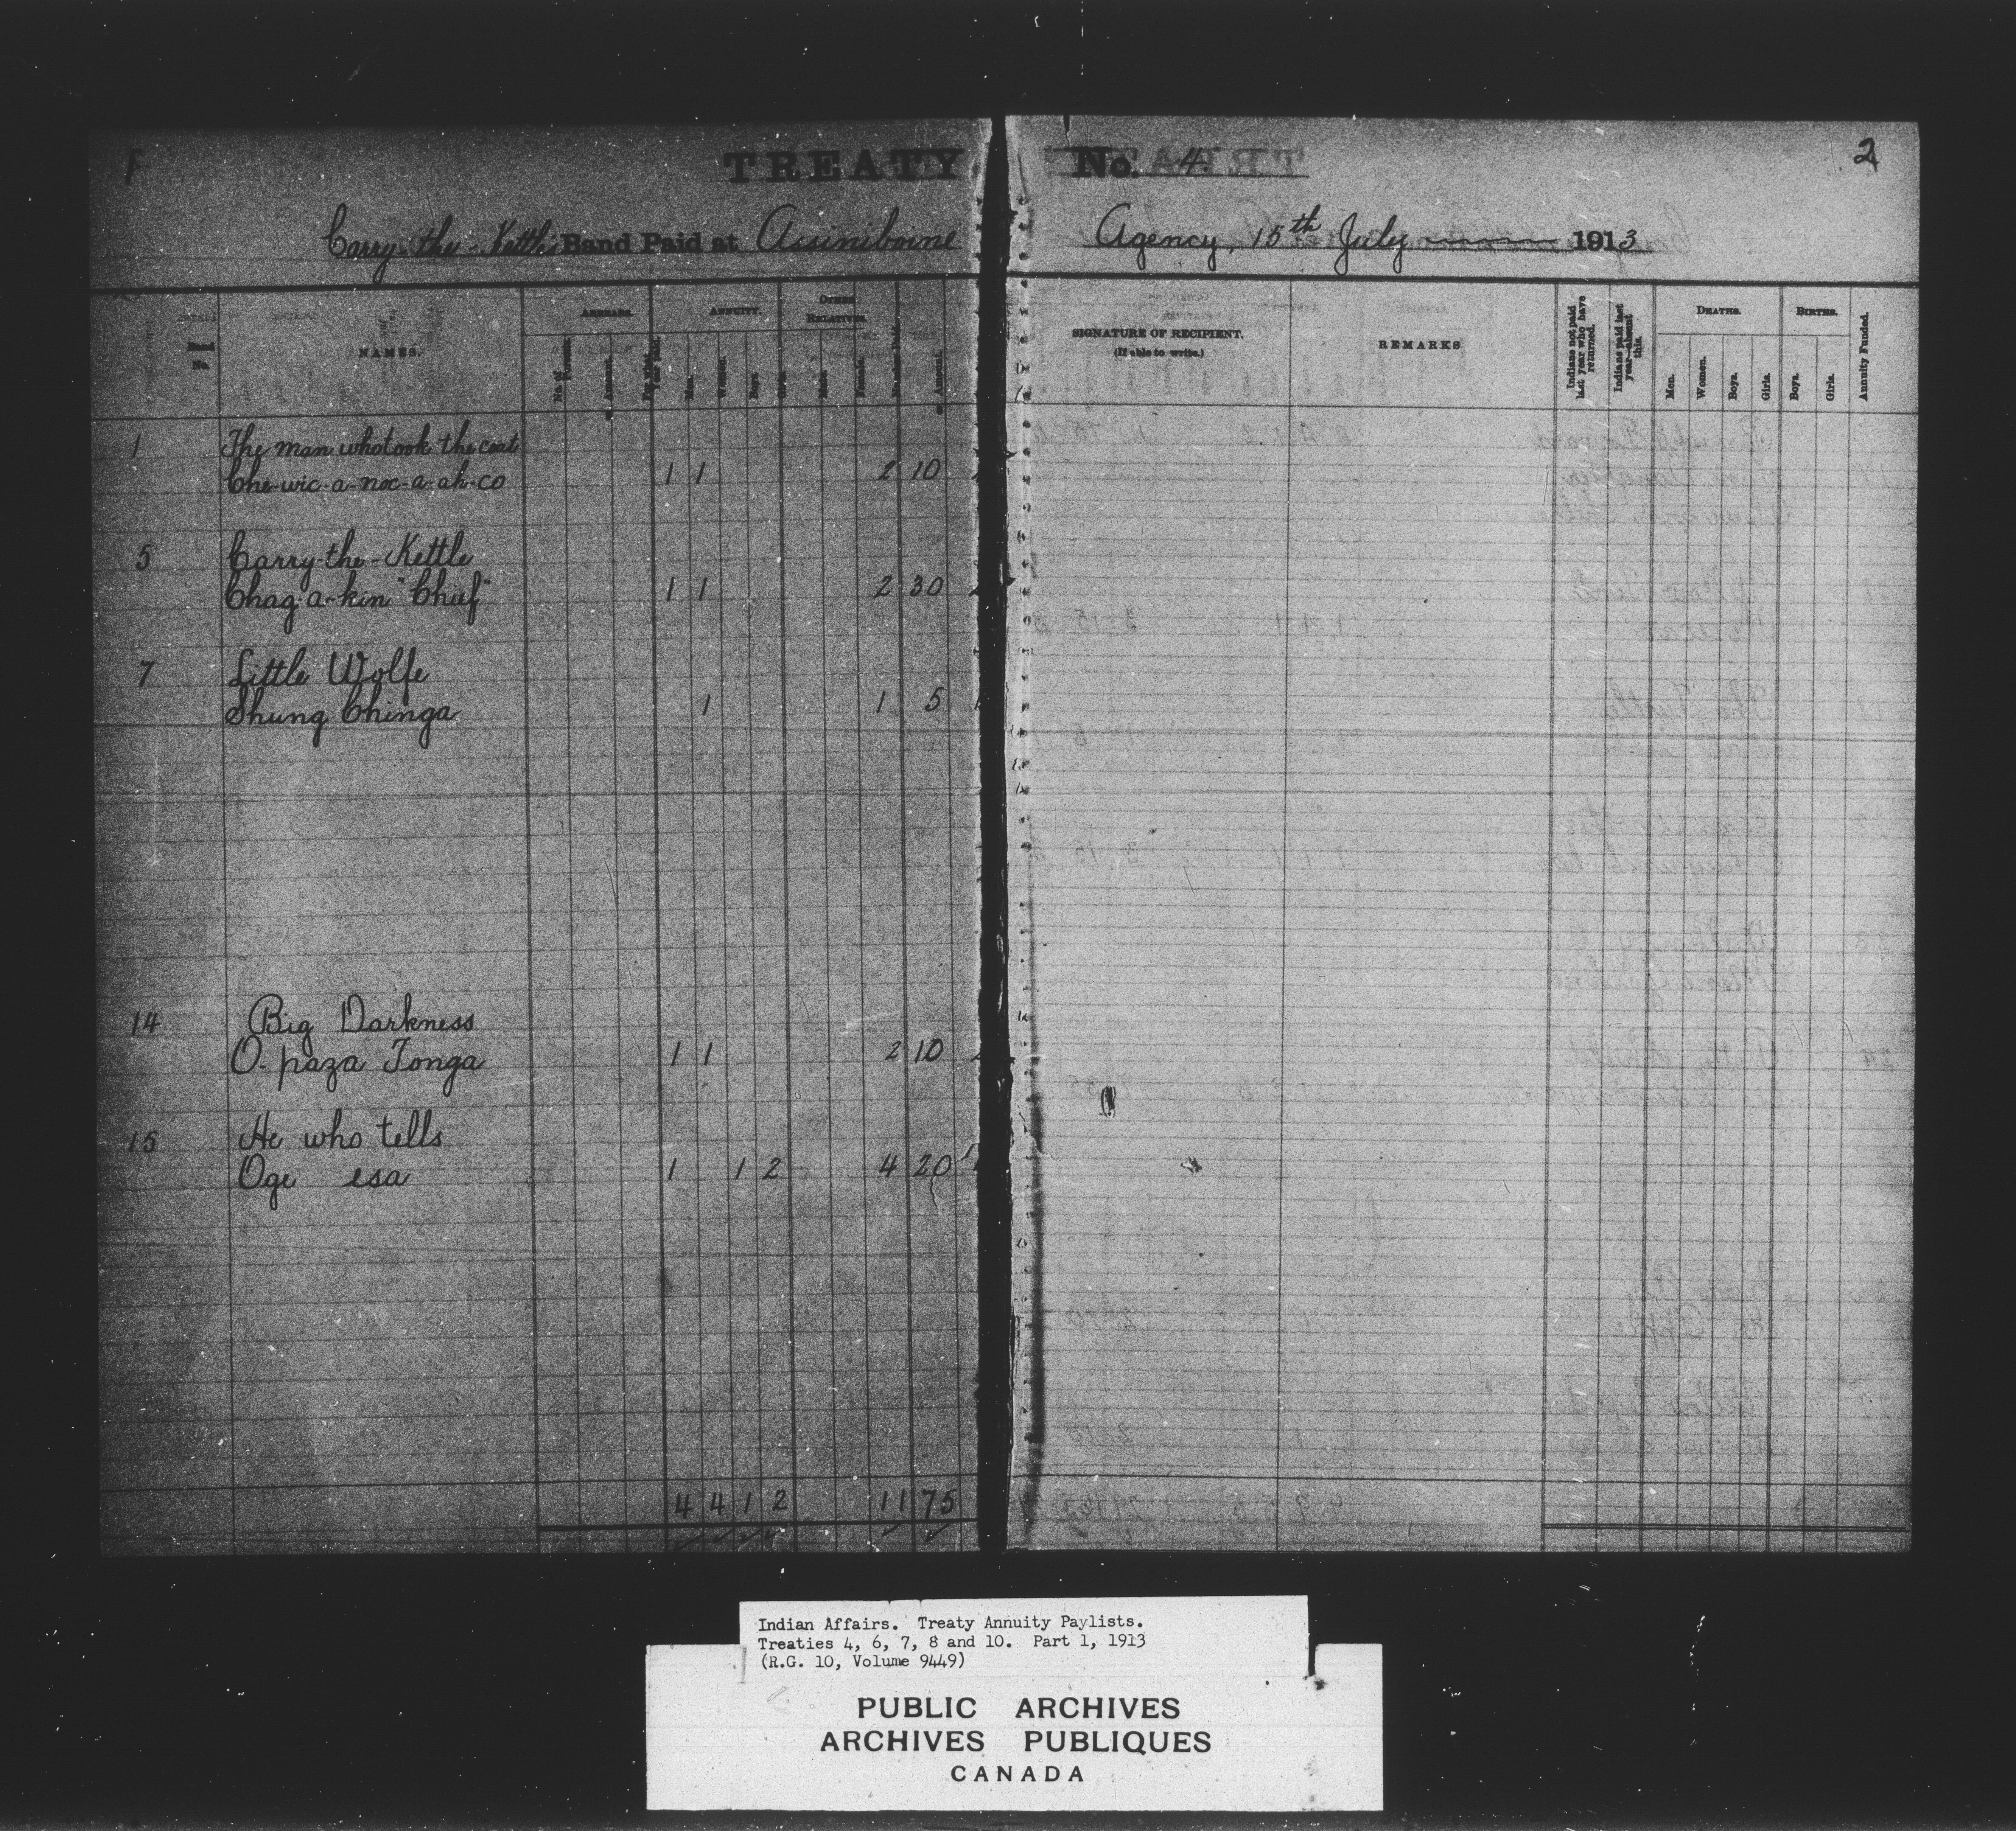 TREATY No. 4.
2
Carry-the-Kettle Band Paid at Assiniboine Agency, 15th July 1913
Band No.
NAMES.
ARREARS.
ANNUITY.
OTHER RELATIVES.
Men.
Women.
Boys.
Amount.
SIGNATURE OF RECIPIENT.
(If able to write.)
REMARKS
Indians not paid last year who have returned.
Indians paid last year—absent this.
DEATHS.
Men.
Women.
Boys.
Girls.
BIRTHS.
Boys.
Girls.
Annuity Funded.
1 The man who took the coat
Che-wic-a-noc-a-ah-co 1 1 2 10
5 Carry-the-Kettle
Chag-a-kin "Chief" 1 1 2 30
7 Little Wolfe
Shung Chinga 1 1 5
14 Big Darkness
O-paza Tonga 1 1 2 10
15 He who tells
Oge esa 1 1 2 4 20
4 4 1 2 11 75
Indian Affairs. Treaty Annuity Paylists.
Treaties 4, 6, 7, 8 and 10. Part 1, 1913
(R.G. 10, Volume 9449)
PUBLIC ARCHIVES
ARCHIVES PUBLIQUES
CANADA